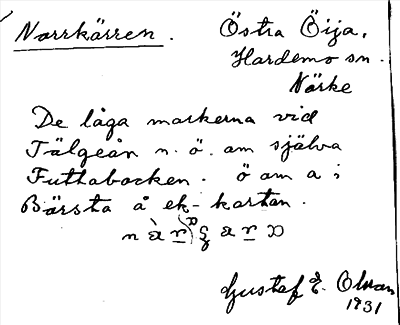 Norrkärren. Östra Öija,
Hardemo sn.
Närke
De låga markerna vid
Tälgeån n. ö. om själva
Futtabocken. ö om a i
Börsta å ek-kartan.
Gustaf E. Olsson
1931